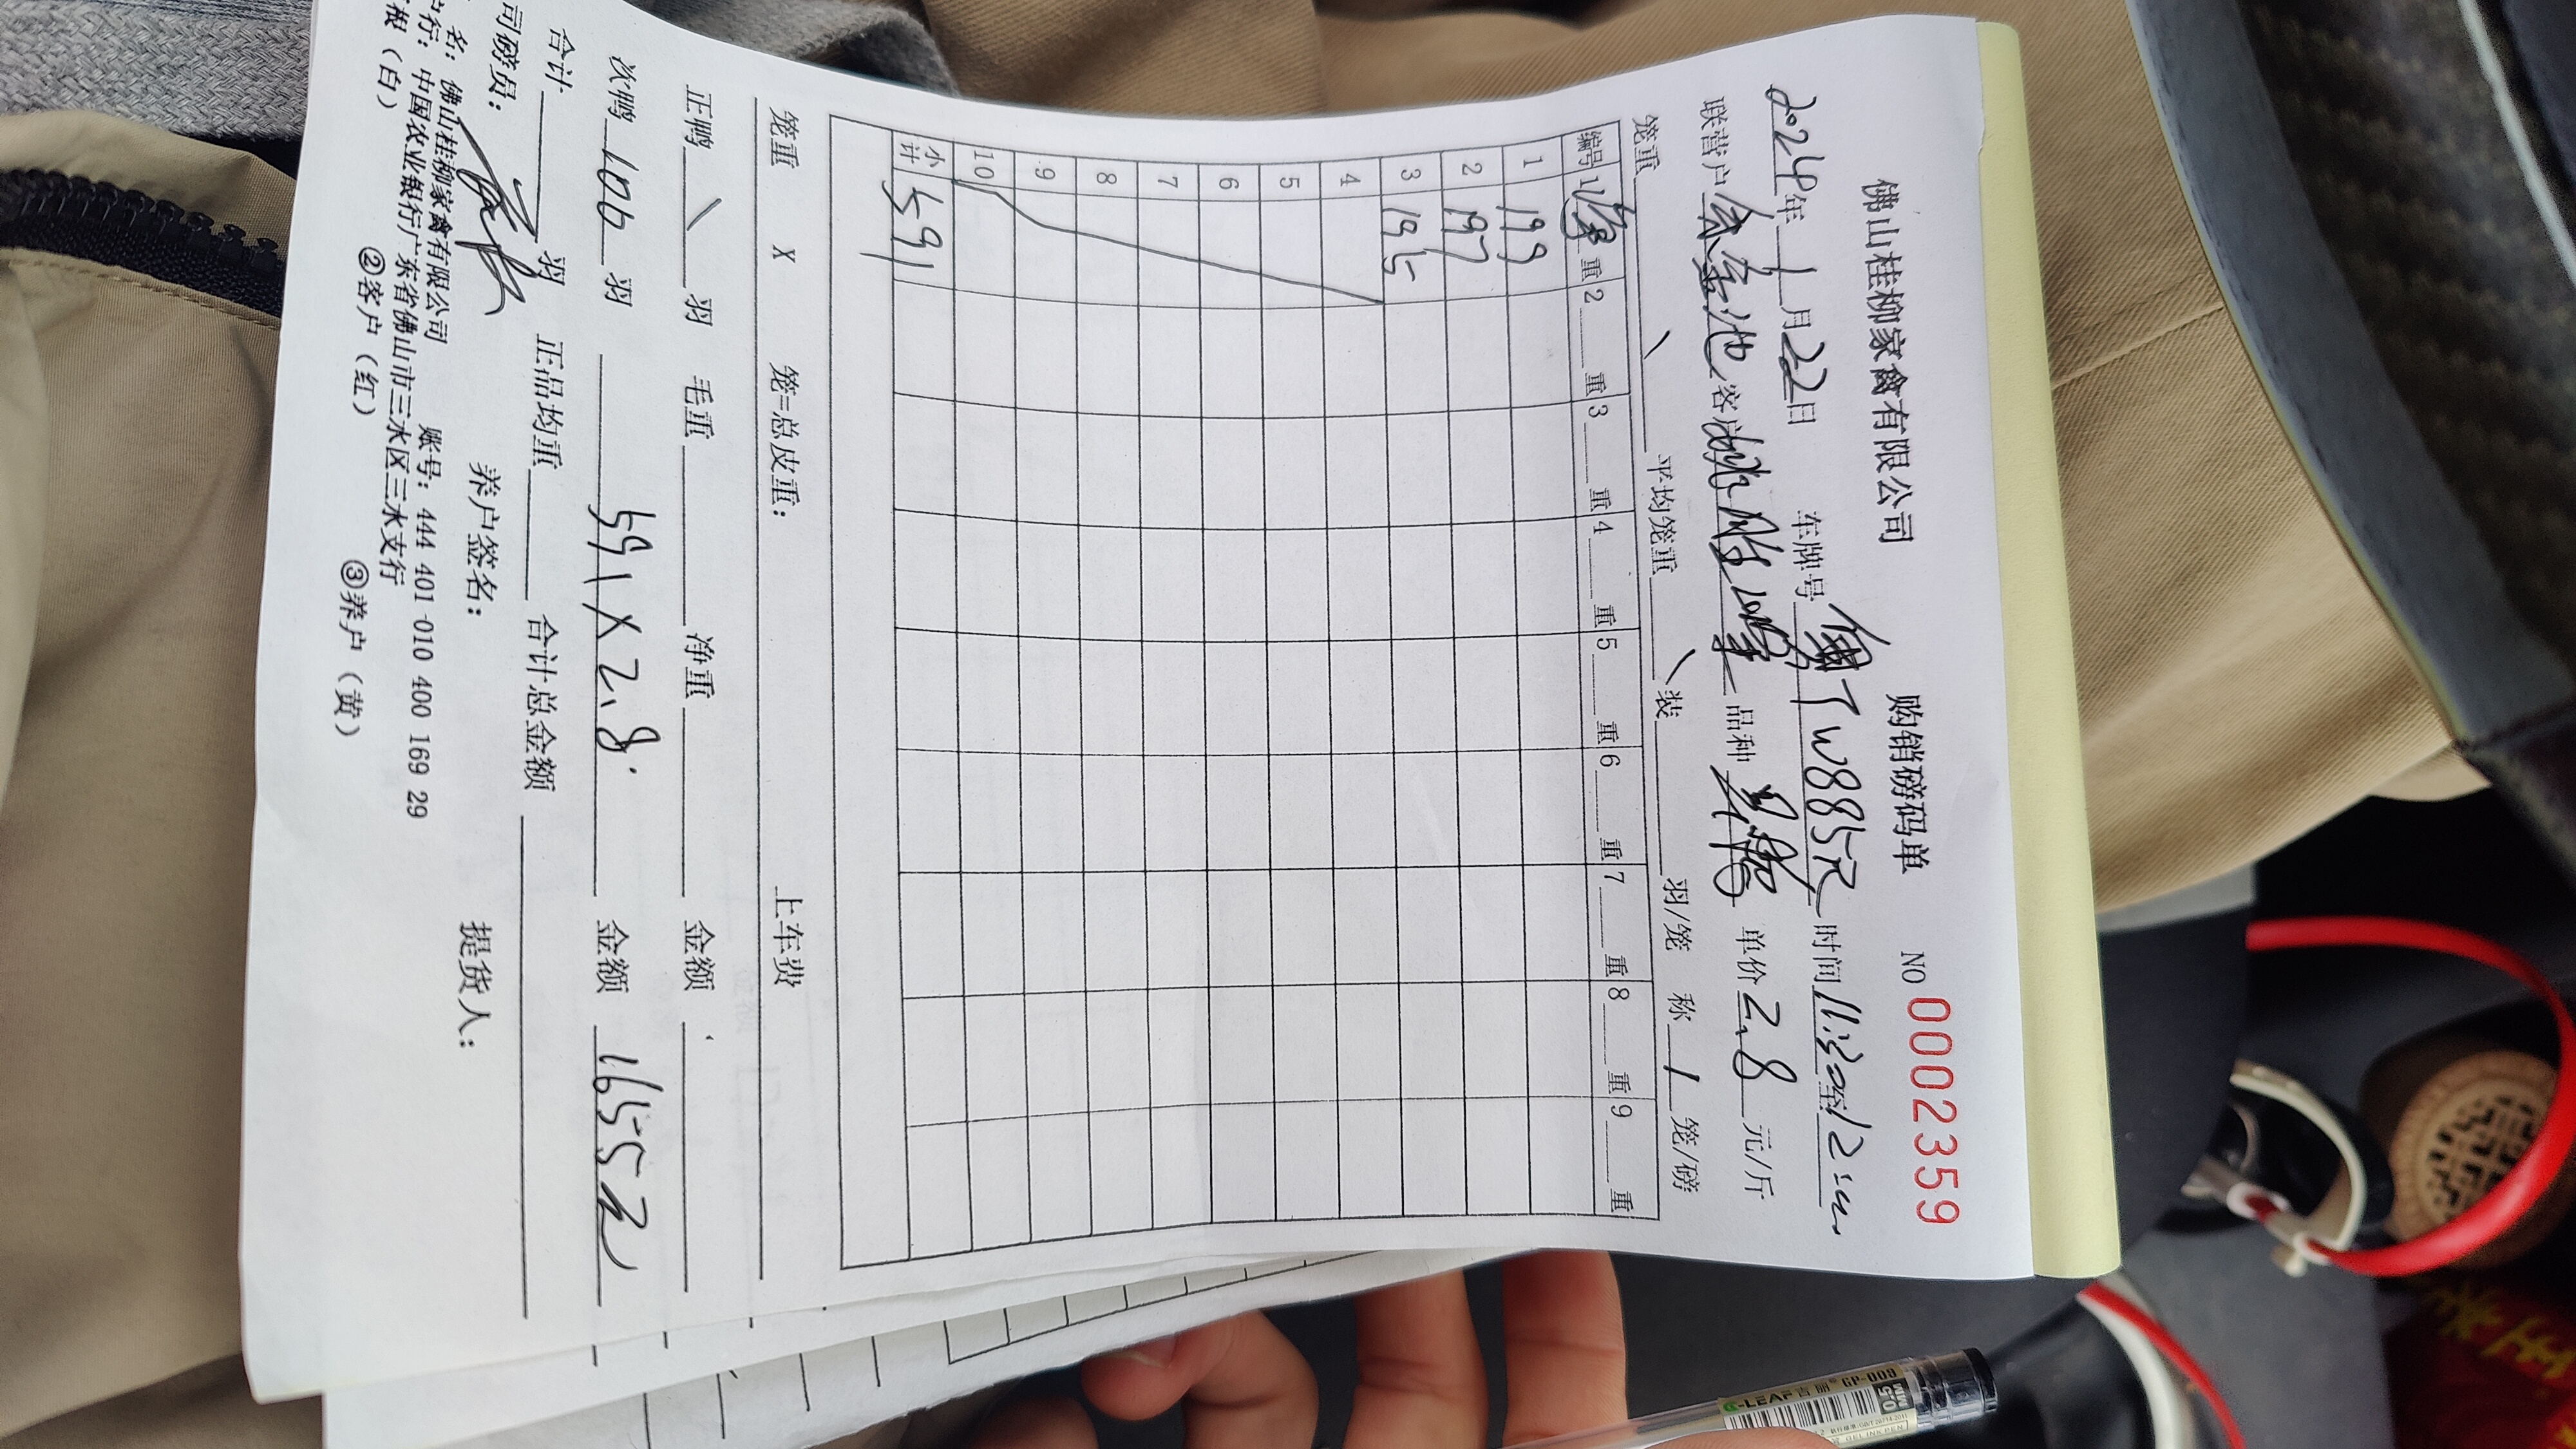 佛山桂柳家禽有限公司 购销磅码单 NO 0002359
2024年1月22日 车牌号 粤TW885 时间 11:30至12:
联营户 池 客户 品种 单价 2.8 元/斤
笼重 \ 平均笼重 \ 装 羽/笼 称 1 笼/磅
编号 1 重 2 重 3 重 4 重 5 重 6 重 7 重 8 重 9 重
1 199
2 197
3 195
4
5
6
7
8
9
10
小计 591
笼重 X 笼=总皮重: 上车费
正鸭 \ 羽 毛重 净重 金额
次鸭 100 羽 591×2.8 金额 1655元
合计 羽 正品均重 合计总金额
司磅员: 养户签名: 提货人:
名: 佛山桂柳家禽有限公司 账号: 444 401 010 400 169 29
户行: 中国农业银行广东省佛山市三水区三水支行
根(白) ②客户(红) ③养户(黄)
e-LEAF GP-009
GEL INK PEN